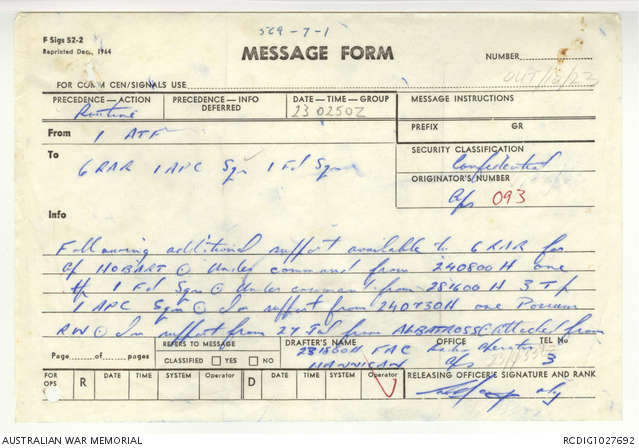 569-7-1
F Sigs 52-2
Reprinted Dec., 1964
MESSAGE FORM
NUMBER
OUT/15/23
FOR COMM CEN/SIGNALS USE
PRECEDENCE—ACTION
Routine
PRECEDENCE—INFO
DEFERRED
DATE—TIME—GROUP
23 0250Z
MESSAGE INSTRUCTIONS
PREFIX GR
From 1 ATF
SECURITY CLASSIFICATION
Confidential
To 6 RAR 1 APC Sqn 1 Fd Sqn
ORIGINATOR'S NUMBER
Ops 093
Info
Following additional support available to 6 RAR for
Op HOBART ⊙ Under command from 240800H one
tp 1 Fd Sqn ⊙ Under command from 231600H 3 Tp
1 APC Sqn ⊙ In support from 240730H one Possum
RW ⊙ In support from 27 Jul from ALBATROSS attached from
Page of pages
REFERS TO MESSAGE
CLASSIFIED YES NO
DRAFTER'S NAME
231500H FAC
HANNIGAN
OFFICE
Ops
TEL No
3
FOR OPS
R DATE TIME SYSTEM Operator
D DATE TIME SYSTEM Operator
RELEASING OFFICER'S SIGNATURE AND RANK
AUSTRALIAN WAR MEMORIAL
RCDIG1027692